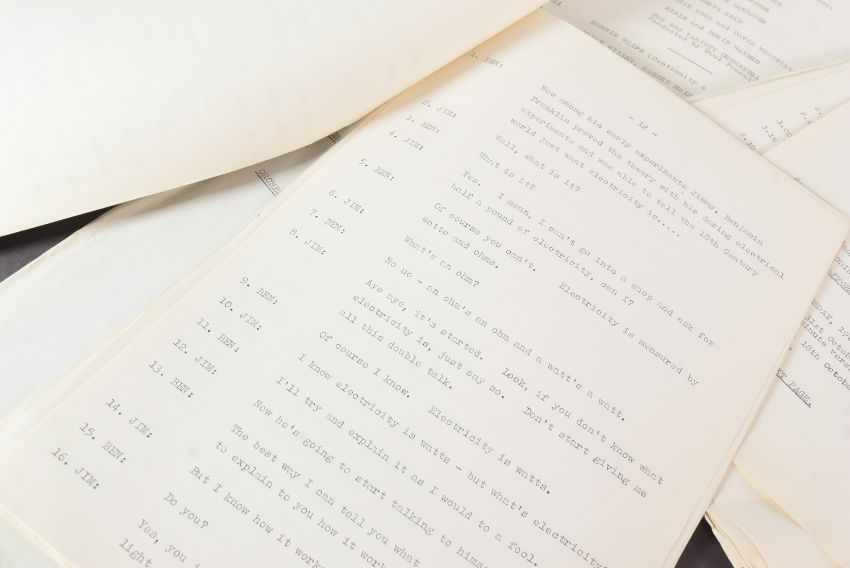 ERIC YORK and DAVID WHITFIELD
ELSIE and DORIS WATERS
THE BBC VARIETY ORCHESTRA
Conducted by Paul
RONNIE WOLFE (Continuity &
ORCHES
- 12 -
1. BEN: Now among his early experiments Jimmy, Benjamin
Franklin proved the theory with his daring electrical
experiments and was able to tell the 18th century
world just what electricity is.....
2. JIM: Well, what is it?
3. BEN: What is it?
4. JIM: Yes. I mean, I can't go into a shop and ask for
half a pound of electricity, can I?
5. BEN: Of course you can't. Electricity is measured by
watts and ohms.
6. JIM: What's an ohm?
7. BEN: No no - an ohm's an ohm and a watt's a watt.
8. JIM: Aye aye, it's started. Look, if you don't know what
electricity is, just say so. Don't start giving me
all this double talk.
9. BEN: Of course I know. Electricity is watts.
10. JIM: I know electricity is watts - but what's electricity?
11. BEN: I'll try and explain it as I would to a fool.
12. JIM: Now he's going to start talking to himse
13. BEN: The best way I can tell you what
to explain to you how it work
14. JIM: But I know how it work
15. BEN: Do you?
16. JIM: Yes, you
light
3.00
3.15
31st Octob
minute vers
18th Octobe
T PAGE.